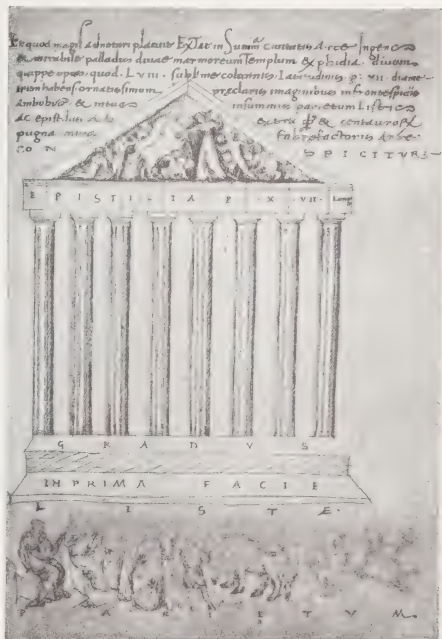 Et quod magis adnotari placuit Extat in Summa Civitatis Arce Ingens
& mirabile palladis divae marmoreum Templum & phidia divom
quippe opus quod . L VIII . sublime columnis Latitudinis p: VII diame
trum habens ornatissimum praeclaris imaginibus in frontespiciis
Ambobus & intus in summis parietum Listis
ac epistiliis extra & centauros
pugna mira fabrefactoris Arte
CON SPICITVR
EPISTILIA P . X . VII . Long
GRADVS
IN PRIMA FACIE
LISTAE .
PARIETVM